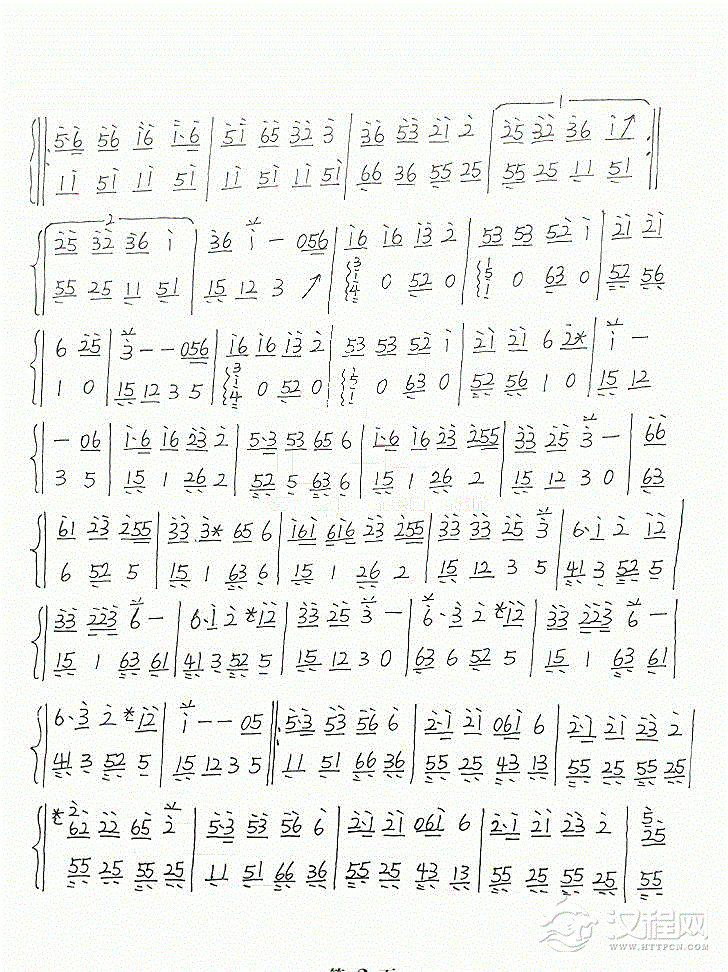 5·6 56 i6 i·6 | 5i 65 32 3 | 36 53 2i 2 | 25 32 36 i
1i 5i 1i 5i | 1i 5i 1i 5i | 66 36 55 25 | 55 25 11 51
25 32 36 i | 36 i - 056 | i6 i6 i3 2 | 53 53 52 i | 2i 2i
55 25 11 51 | 15 12 3 | 0 52 0 | 0 63 0 | 52 56
6 25 | 3 - - 056 | i6 i6 i3 2 | 53 53 52 i | 2i 2i 6 2* | i -
1 0 | 15 12 3 5 | 0 52 0 | 0 63 0 | 52 56 1 0 | 15 12
- 06 | i·6 i6 23 2 | 5·3 53 65 6 | i·6 i6 23 255 | 33 25 3 - | 66
3 5 | 15 1 26 2 | 52 5 63 6 | 15 1 26 2 | 15 12 3 0 | 63
6i 23 255 | 33 3* 65 6 | i6i 6i6 23 255 | 33 33 25 3 | 6·i 2 i2
6 52 5 | 15 1 63 6 | 15 1 26 2 | 15 12 3 5 | 41 3 52 5
33 223 6 - | 6·i 2 *i2 | 33 25 3 - | 6·3 2 *i2 | 33 223 6 -
15 1 63 61 | 41 3 52 5 | 15 12 3 0 | 63 6 52 5 | 15 1 63 61
6·3 2 *i2 | i - - 05 | 5·3 53 56 6 | 2·i 2i 06i 6 | 2·i 2i 23 2
41 3 52 5 | 15 12 3 5 | 11 51 66 36 | 55 25 43 13 | 55 25 55 25
*62 22 65 2 | 5·3 53 56 6 | 2·i 2i 06i 6 | 2·i 2i 23 2 | 25
55 25 55 25 | 11 51 66 36 | 55 25 43 13 | 55 25 55 25 | 55
汉程网
HTTPCN.COM